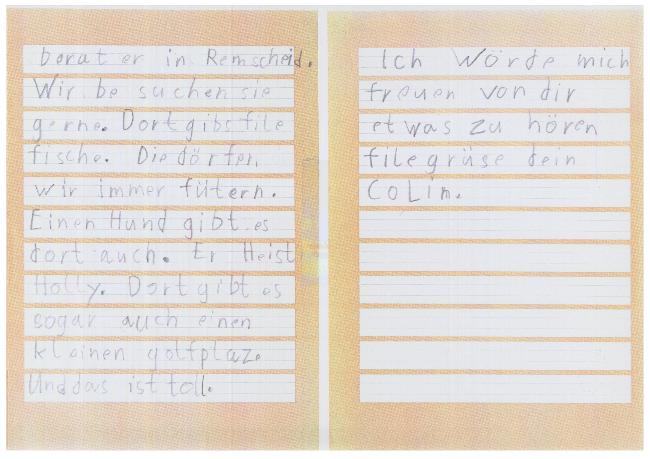 berat er in Remscheid.
Wir be suchen sie
gerne. Dort gibs file
fische. Die dörfen
wir immer fütern.
Einen Hund gibt es
dort auch. Er Heist
Holly. Dort gibt es
sogar auch einen
kleinen golfplaz.
Und das ist toll.
Ich Wörde mich
freuen von dir
etwas zu hören
file grüse dein
COLin.